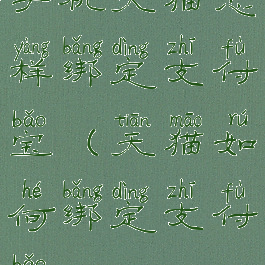 手机天猫怎
yàng bǎng dìng zhī fù
样绑定支付
bǎo tiān māo rú
宝(天猫如
hé bǎng dìng zhī fù
何绑定支付
bǎo